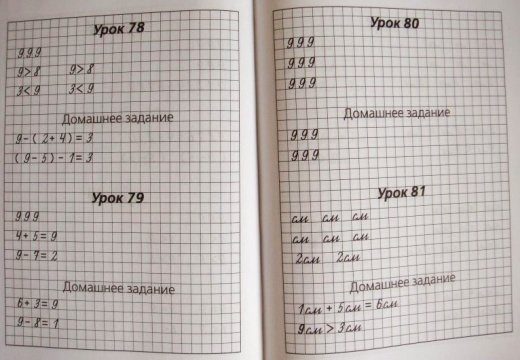 Урок 78
9 9 9
9 > 8 9 > 8
3 < 9 3 < 9
Домашнее задание
9 - ( 2 + 4 ) = 3
( 9 - 5 ) - 1 = 3
Урок 79
9 9 9
4 + 5 = 9
9 - 7 = 2
Домашнее задание
6 + 3 = 9
9 - 8 = 1
Урок 80
9 9 9
9 9 9
9 9 9
Домашнее задание
9 9 9
9 9 9
Урок 81
см см см
см см см
2см 2см
Домашнее задание
1см + 5см = 6см
9см > 3см